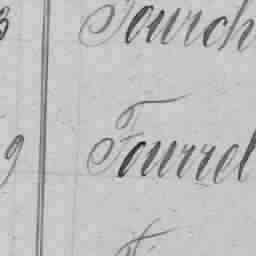 3 Fourch
9 Fourrel